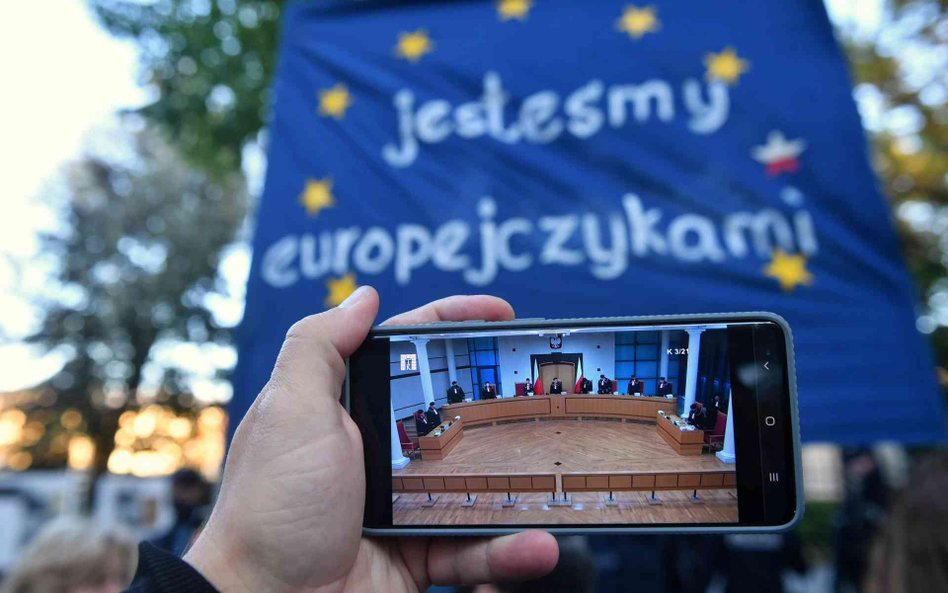 jesteśmy
europejczykami
K 3/21